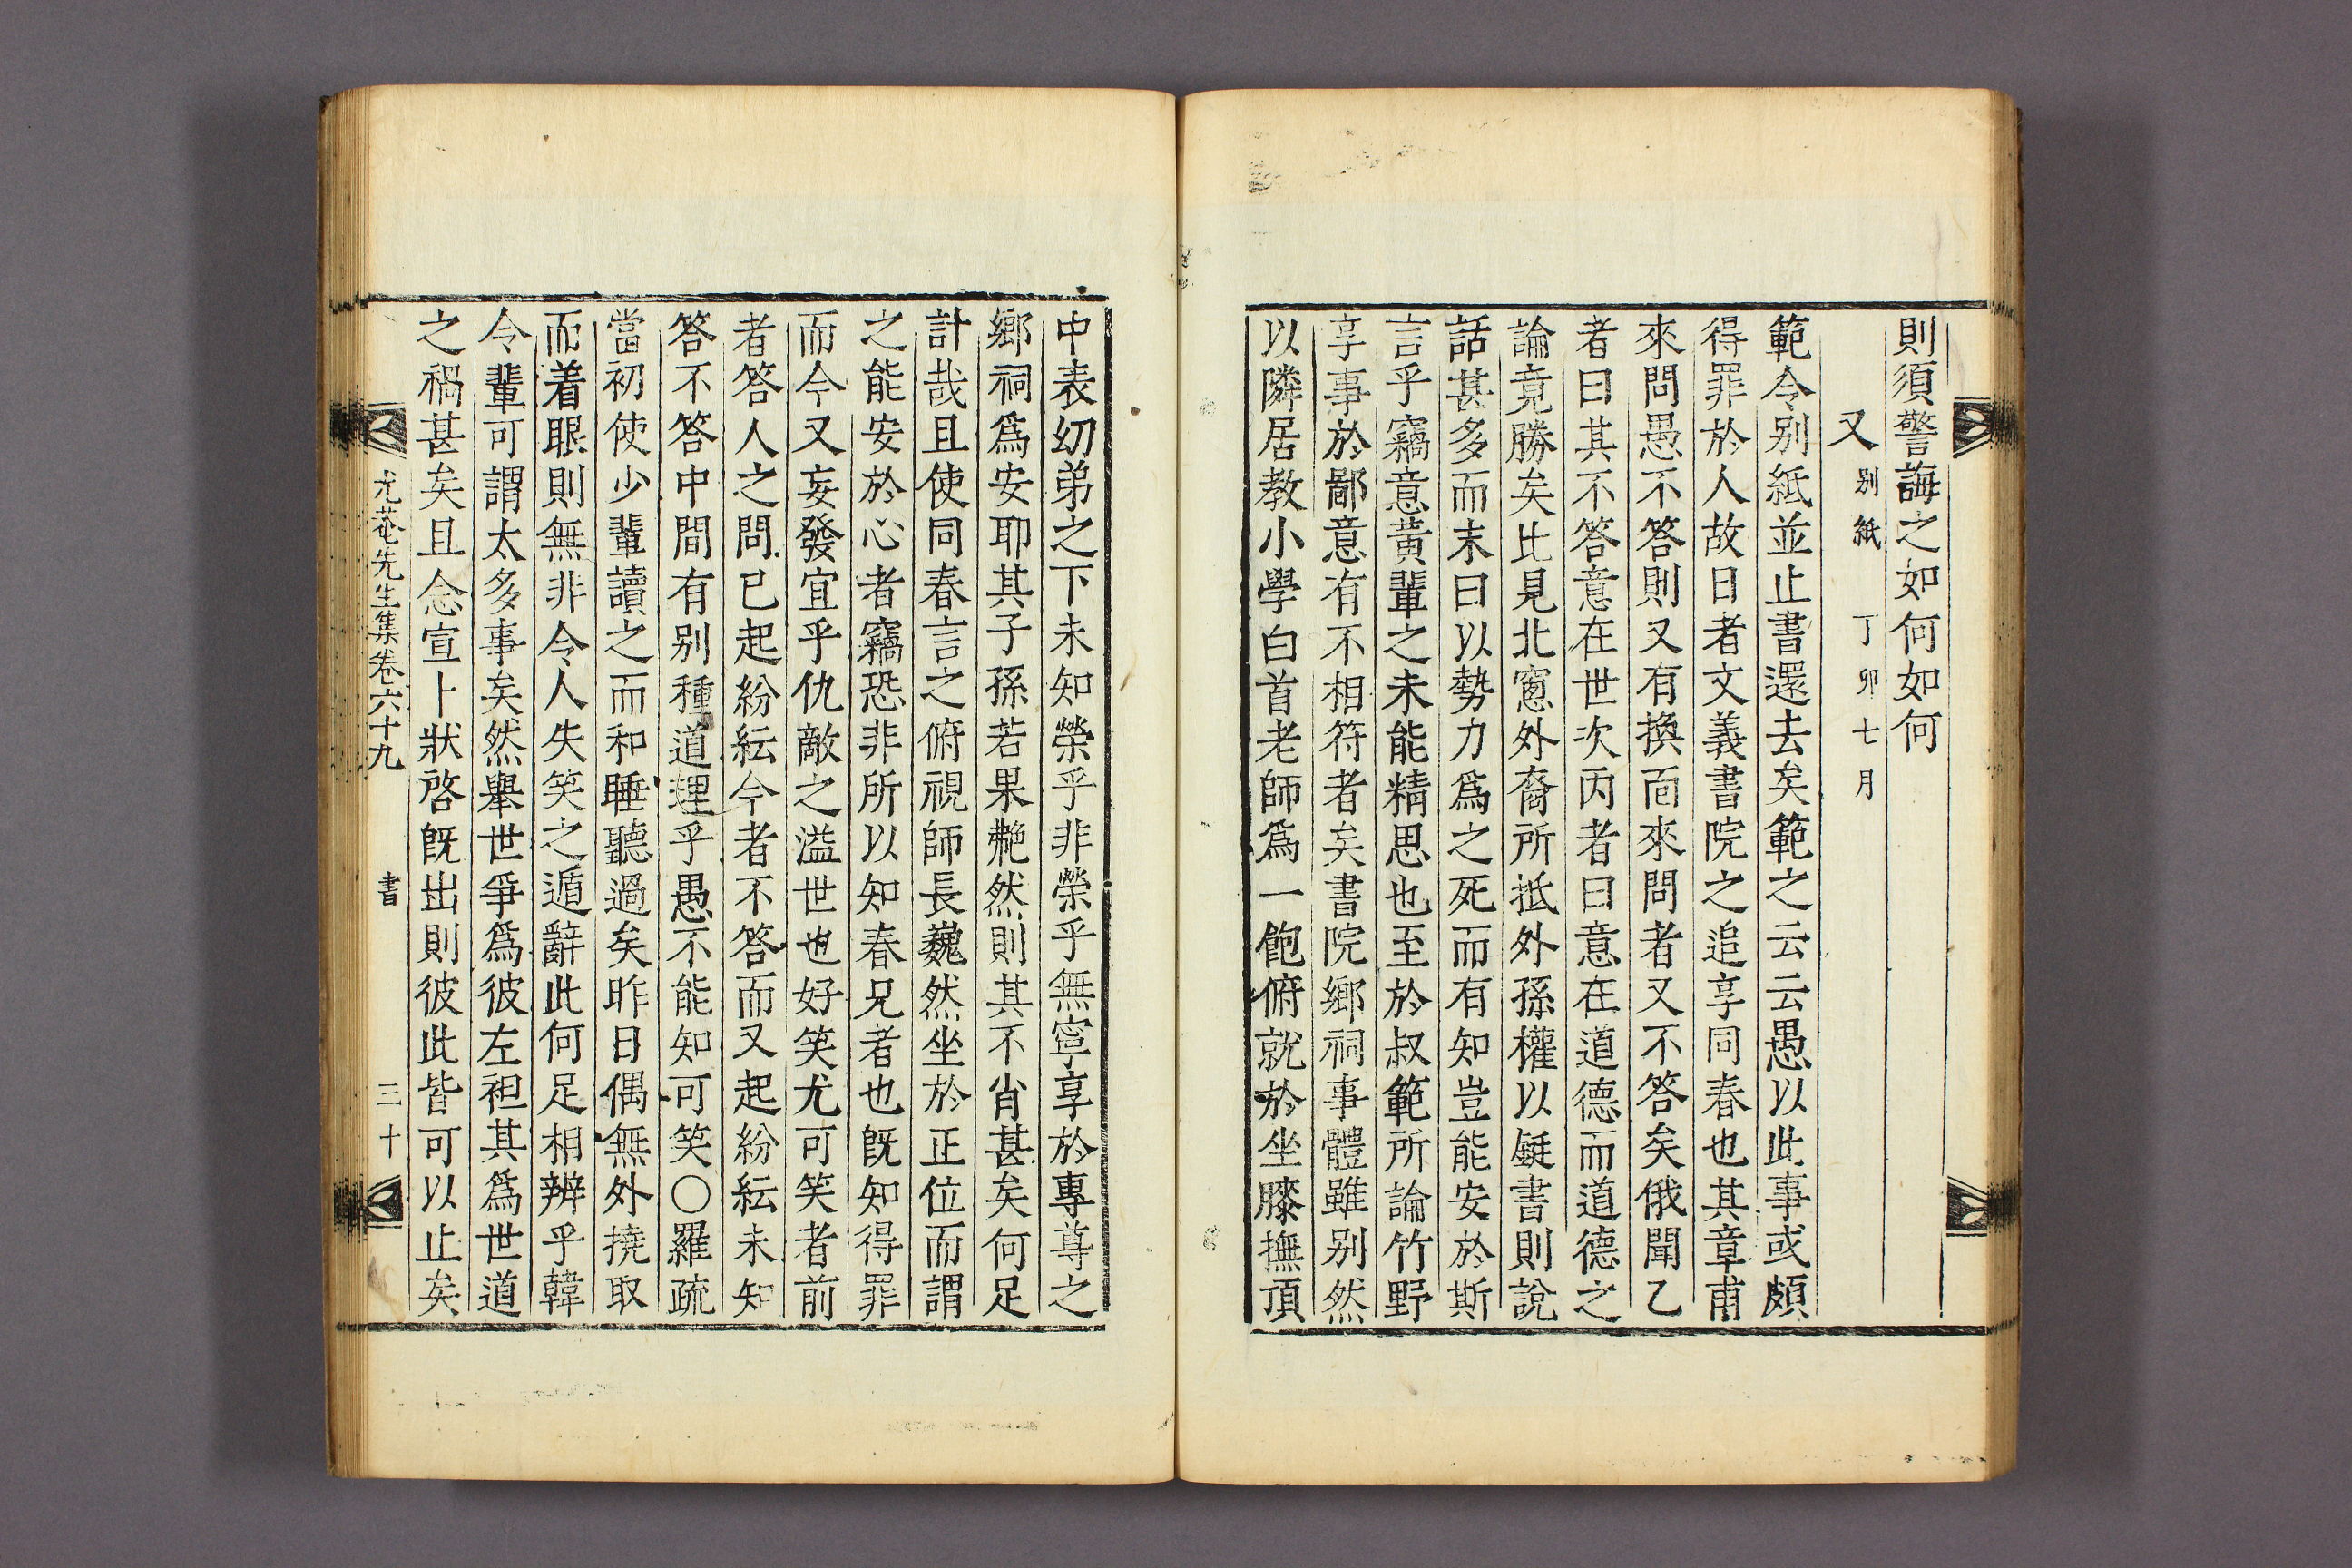 則須警誨之如何如何
又 別紙 丁卯七月
範令別紙並止書還去矣範之云云愚以此事或頗
得罪於人故日者文義書院之追享同春也其章甫
來問愚不答則又有換面來問者又不答矣俄聞乙
者曰其不答意在世次丙者曰意在道德而道德之
論竟勝矣比見北窓外裔所抵外孫權以鋌書則說
話甚多而末曰以勢力爲之死而有知豈能安於斯
言乎竊意黃輩之未能精思也至於叔範所論竹野
享事於鄙意有不相符者矣書院鄉祠事體雖別然
以隣居敎小學白首老師爲一飽俯就於坐膝撫頂
中表幼弟之下未知榮乎非榮乎無寧享於專尊之
鄉祠爲安耶其子孫若果艴然則其不肖甚矣何足
計哉且使同春言之俯視師長巍然坐於正位而謂
之能安於心者竊恐非所以知春兄者也旣知得罪
而今又妄發宜乎仇敵之溢世也好笑尤可笑者前
者答人之問已起紛紜今者不答而又起紛紜未知
答不答中間有別種道理乎愚不能知可笑○羅疏
當初使少輩讀之而和睡聽過矣昨日偶無外撓取
而着眼則無非令人失笑之遁辭此何足相辨乎韓
令輩可謂太多事矣然擧世爭爲彼左袒其爲世道
之禍甚矣且念宣卜狀啓旣出則彼此皆可以止矣
尤菴先生集卷六十九 書 三十